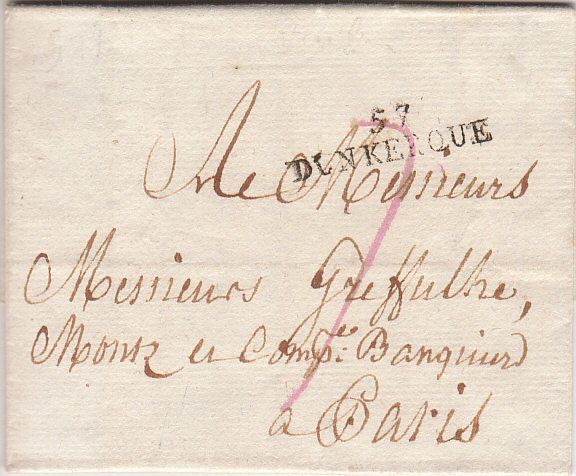 57
DUNKERQUE
A Messieurs
Messieurs Greffulhe,
Montz et Comp.e Banquiers
à Paris